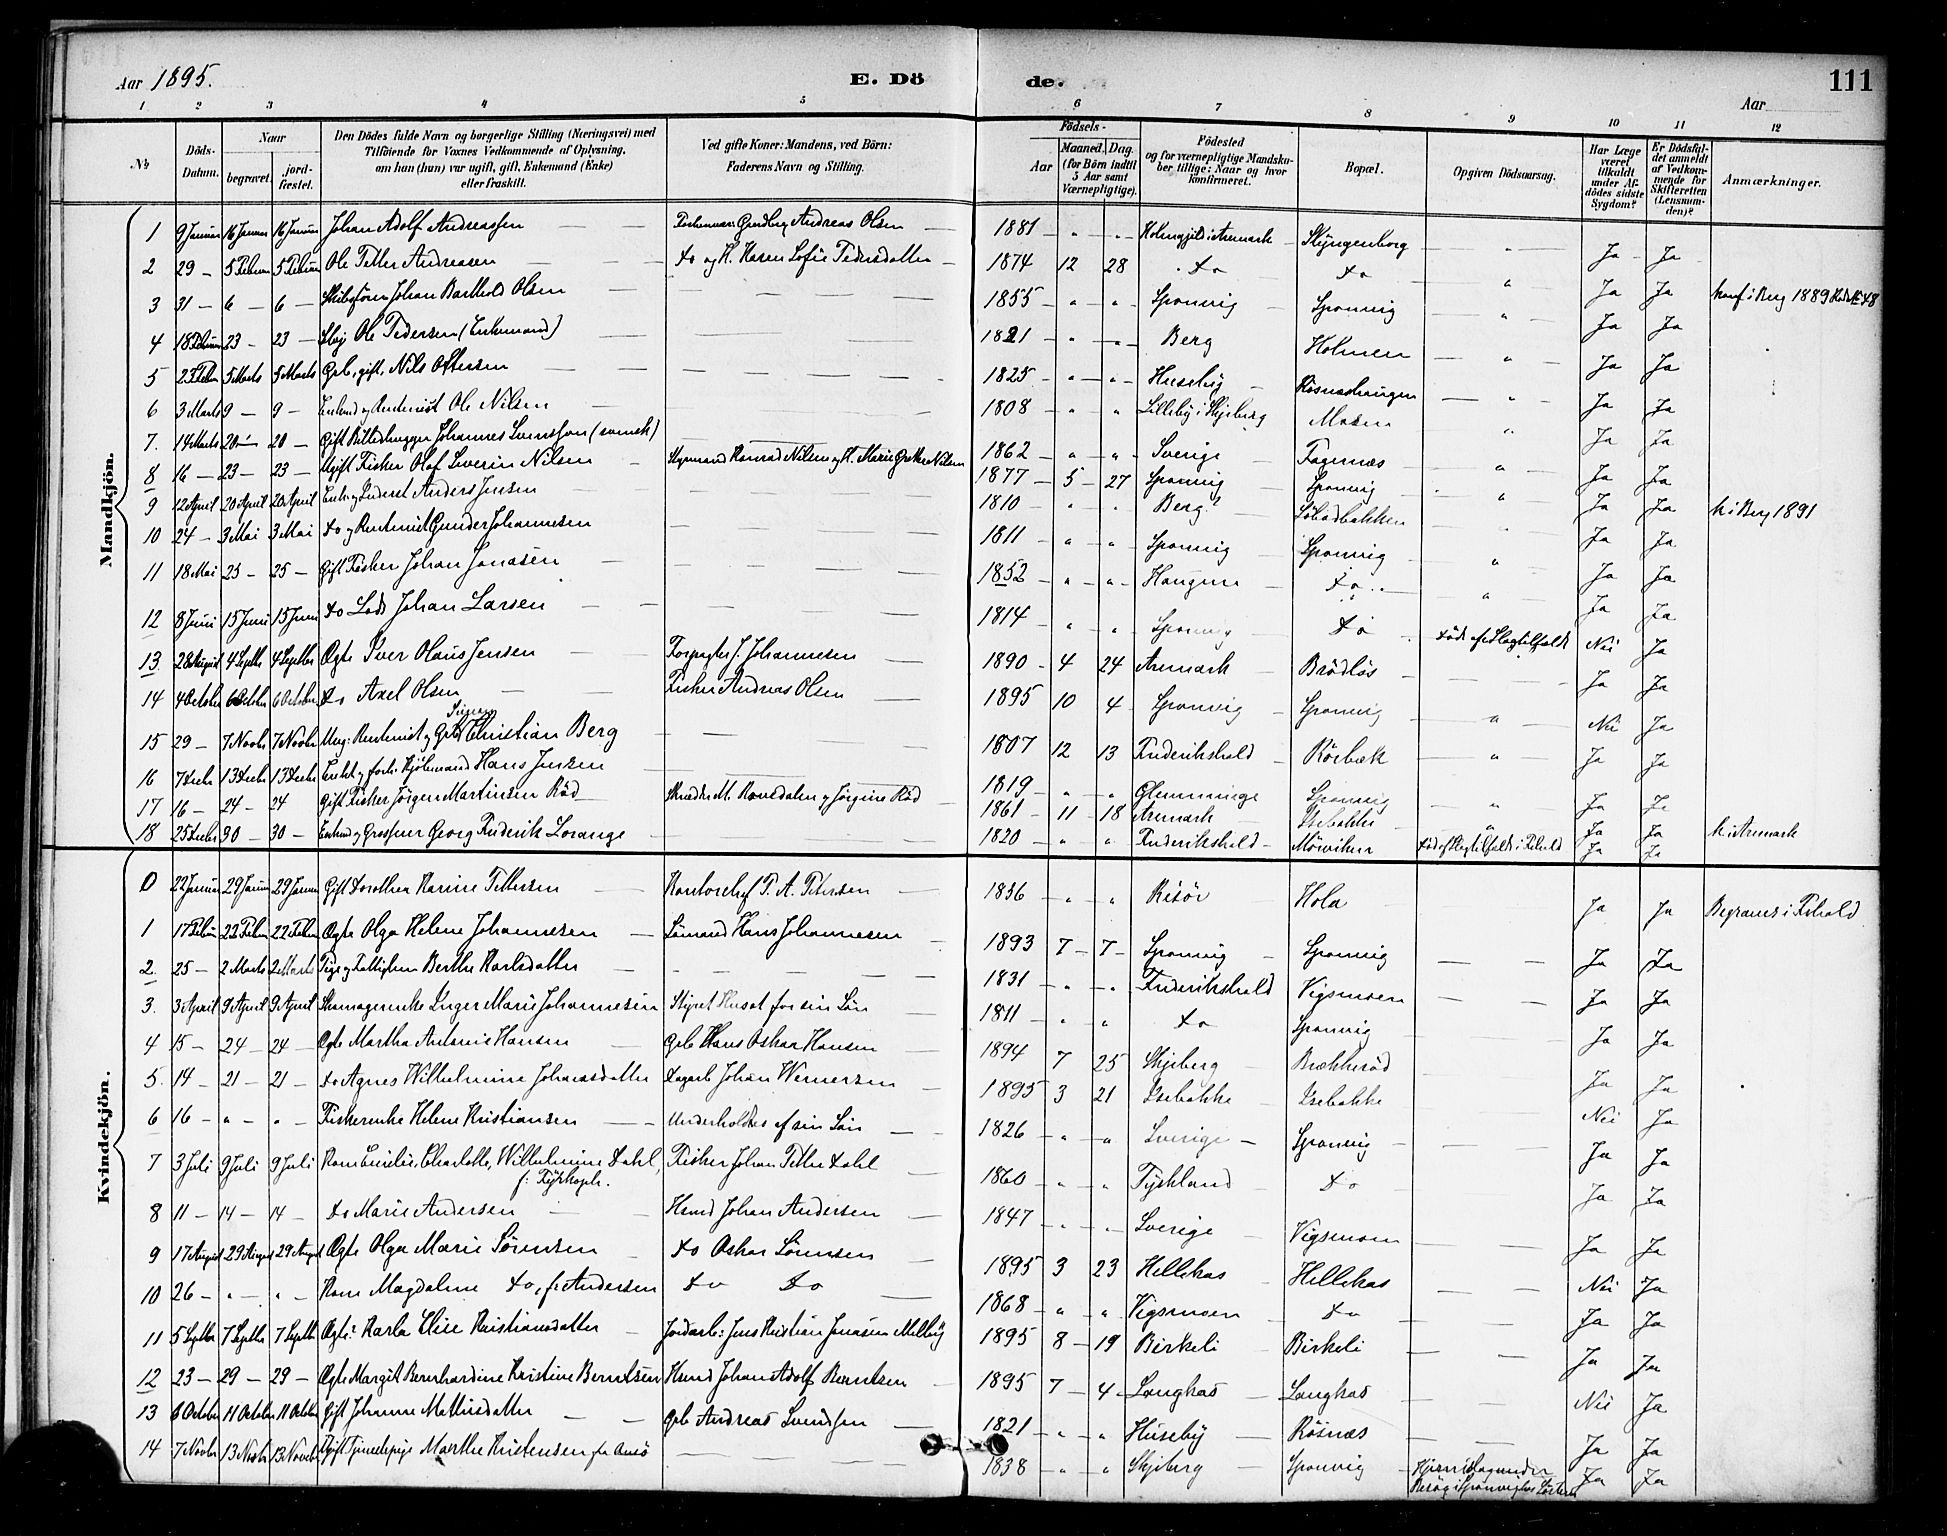 Aar 1895. E. Dö de. Aar 111
1 2 3 4 5 6 7 8 9 10 11 12
No
Döds-Datum.
Naar begravet. jordfæstet.
Den Dödes fulde Navn og borgerlige Stilling (Næringsvei) med Tilföiende for Voxnes Vedkommende af Oplysning, om han (hun) var ugift, gift, Enkemand (Enke) eller fraskilt.
Ved gifte Koner: Mandens, ved Börn: Faderens Navn og Stilling.
Födsels-
Aar Maaned. Dag. (for Börn indtil 5 Aar samt Værnepligtige).
Födested og for værnepligtige Mandskaber tillige: Naar og hvor konfirmeret.
Bopæl.
Opgiven Dödsaarsag.
Har Læge været tilkaldt under Afdödes sidste Sygdom?
Er Dödsfaldet anmeldt af Vedkommende for Skifteretten (Lensmanden)?
Anmærkninger.
Mandkjön.
1 9 Januar 16 Januar 16 Januar Johan Adolf Andreassen Andreas Olsen 1881 " " Aremark Ja Ja
2 29 - 5 Februar 5 Februar Ole Petter Andreasen Do og H. Karen Sofie Pedersdatter 1874 12 28 Do Do " Ja Ja Konf i Berg 1889
3 31 - 6 - 6 - Johan Barthold Olsen 1855 " " Sponvig Sponvig " Ja Ja
4 18 Februar 23 - 23 - Ole Pedersen (Enkemand) 1821 " " Berg Holmen " Ja Ja
5 5 Marts 5 Marts Grb, gift, Nils Ottersen 1825 " " Huseby " Ja Ja
6 3 Marts 9 - 9 - Ole Nilsen 1808 " " Lilleby i Skjeberg Mosen " Ja Ja
7. 14 Marts 20 - 20 - Gift Johannes Svensson (svensk) 1862 " " Sverige Fagernæs " Ja Ja
8 16 - 23 - 23 - Ugift Fisker Olaf Severin Nilsen Styrmand Konrad Nilsen og H. Marie Grethe Nilsen 1877 5 27 Sponvig Sponvig " Ja Ja K i Berg 1891
9 12 April 20 April 20 April Anders Jensen 1810 " " Berg? " Ja Ja
10 24 - 3 Mai 3 Mai Do og Rentenist Gunder Johannesen 1811 " " Sponvig Sponvig " Ja Ja
11 18 Mai 25 - 25 - Gift Fisker Johan Jonasen 1852 " " Haugene Do " Ja Ja
12 8 Juni 15 Juni 15 Juni Do Lods Johan Larsen 1814 " " Sponvig Do Död af Slagtilfælde Nei Ja
13 28 August 4 Septbr 4 Septbr Ægte Iver Olaus Jensen Forpagter J. Johannesen 1890 4 24 Aremark Brödløs Ja Ja
14 4 October 6 October 6 October Do Axel Olsen Fisker Andreas Olsen 1895 10 4 Sponvig Sponvig " Nei Ja
15 29 - 7 Novbr 7 Novbr Christian Berg 1807 12 13 Frederikshald Rörbæk " Ja Ja
16 7 Decbr 13 Decbr 13 Decbr Hans Jensen 1819 " " Glemminge Sponvig " Ja Ja
17 16 - 24 - 24 Gift Fisker Jörgen Martinsen Röd Jörgine Röd 1861 11 18 Aremark Isebakke " Ja Ja K i Aremark
18 25 Decbr 30 - 30 - Georg Frederik Lorange 1820 " " Frederikshald Ja Ja
Kvindekjön.
0 22 Januar 29 Januar 29 Januar Gift Dorothea Karine Pettersen Kontorchef P. A. Petersen 1836 " " Risör Hola Ja Ja Begraves i Fr.hald
1 17 Febr 22 Febr 22 Febr Ægte Olga Helene Johannesen Sömand Hans Johannesen 1893 7 7 Sponvig Sponvig Ja Ja
2. 25 - 2 Marts 2 Marts Pige og Fattiglem Berthe Karlsdatter 1831 " " Frederikshald Vigsmoen Ja Ja
3. 3 April 9 April 9 April Inger Marie Johannesen Styret Huset for sin Sön 1811 " " Do Sponvig Ja Ja
4 15 - 24 - 24 - Ægte Martha Antonie Hansen Grb Hans Oskar Hansen 1894 7 25 Skjeberg Brækkeröd Ja Ja
5. 14 - 21 - 21 - Do Agnes Wilhelmine Johansdatter Dagarb Johan Wernersen 1895 3 21 Isebakke Isebakke Nei Ja
6 16 - " - " - Fiskerenke Helene Kristiansen Underholdtes af sin Sön 1826 " " Sverige Sponvig Ja Ja
7 3 Juli 9 Juli 9 Juli Kone Emilie, Charlotte, Wilhelmine Dahl, Fisker Johan Petter Dahl 1860 " " Tyskland Do Ja Ja
8 11 - 14 - 14 - Do Marie Andersen Hsmd Johan Andersen 1847 " " Sverige Vigsmoen Ja Ja
9 17 August 29 August 29 August Ægte Olga Marie Sörensen Do Oskar Sörensen 1895 3 23 Hellekas Hellekas Nei Ja
10 26 - " - " - Kone Magdalene Do, f. Andersen Do Do 1868 " " Vigsmoen Do Ja Ja
11 5 Septbr 7 Septbr 7 Septbr Ægte: Karla Elise Kristiansdatter Jordarb: Jens Kristian Jonasen Melleby 1895 8 19 Birkeli Birkeli Ja Ja
12 23 - 29 - 29 - Ægte Margit Bernhardine Kristine Berntsen Hsmd Johan Adolf Berntsen 1895 7 4 Langkas Langkas Nei Ja
13 6 October 11 October 11 October Gift Johanne Mathisdatter Grb Andreas Svendsen 1821 " " Huseby Rösnæs Ja Ja
14 7 Novbr 13 Novbr 13 Novbr Ugift Tjenestepige Marthe Kristensen 1838 " " Skjeberg Sponvig Ja Ja